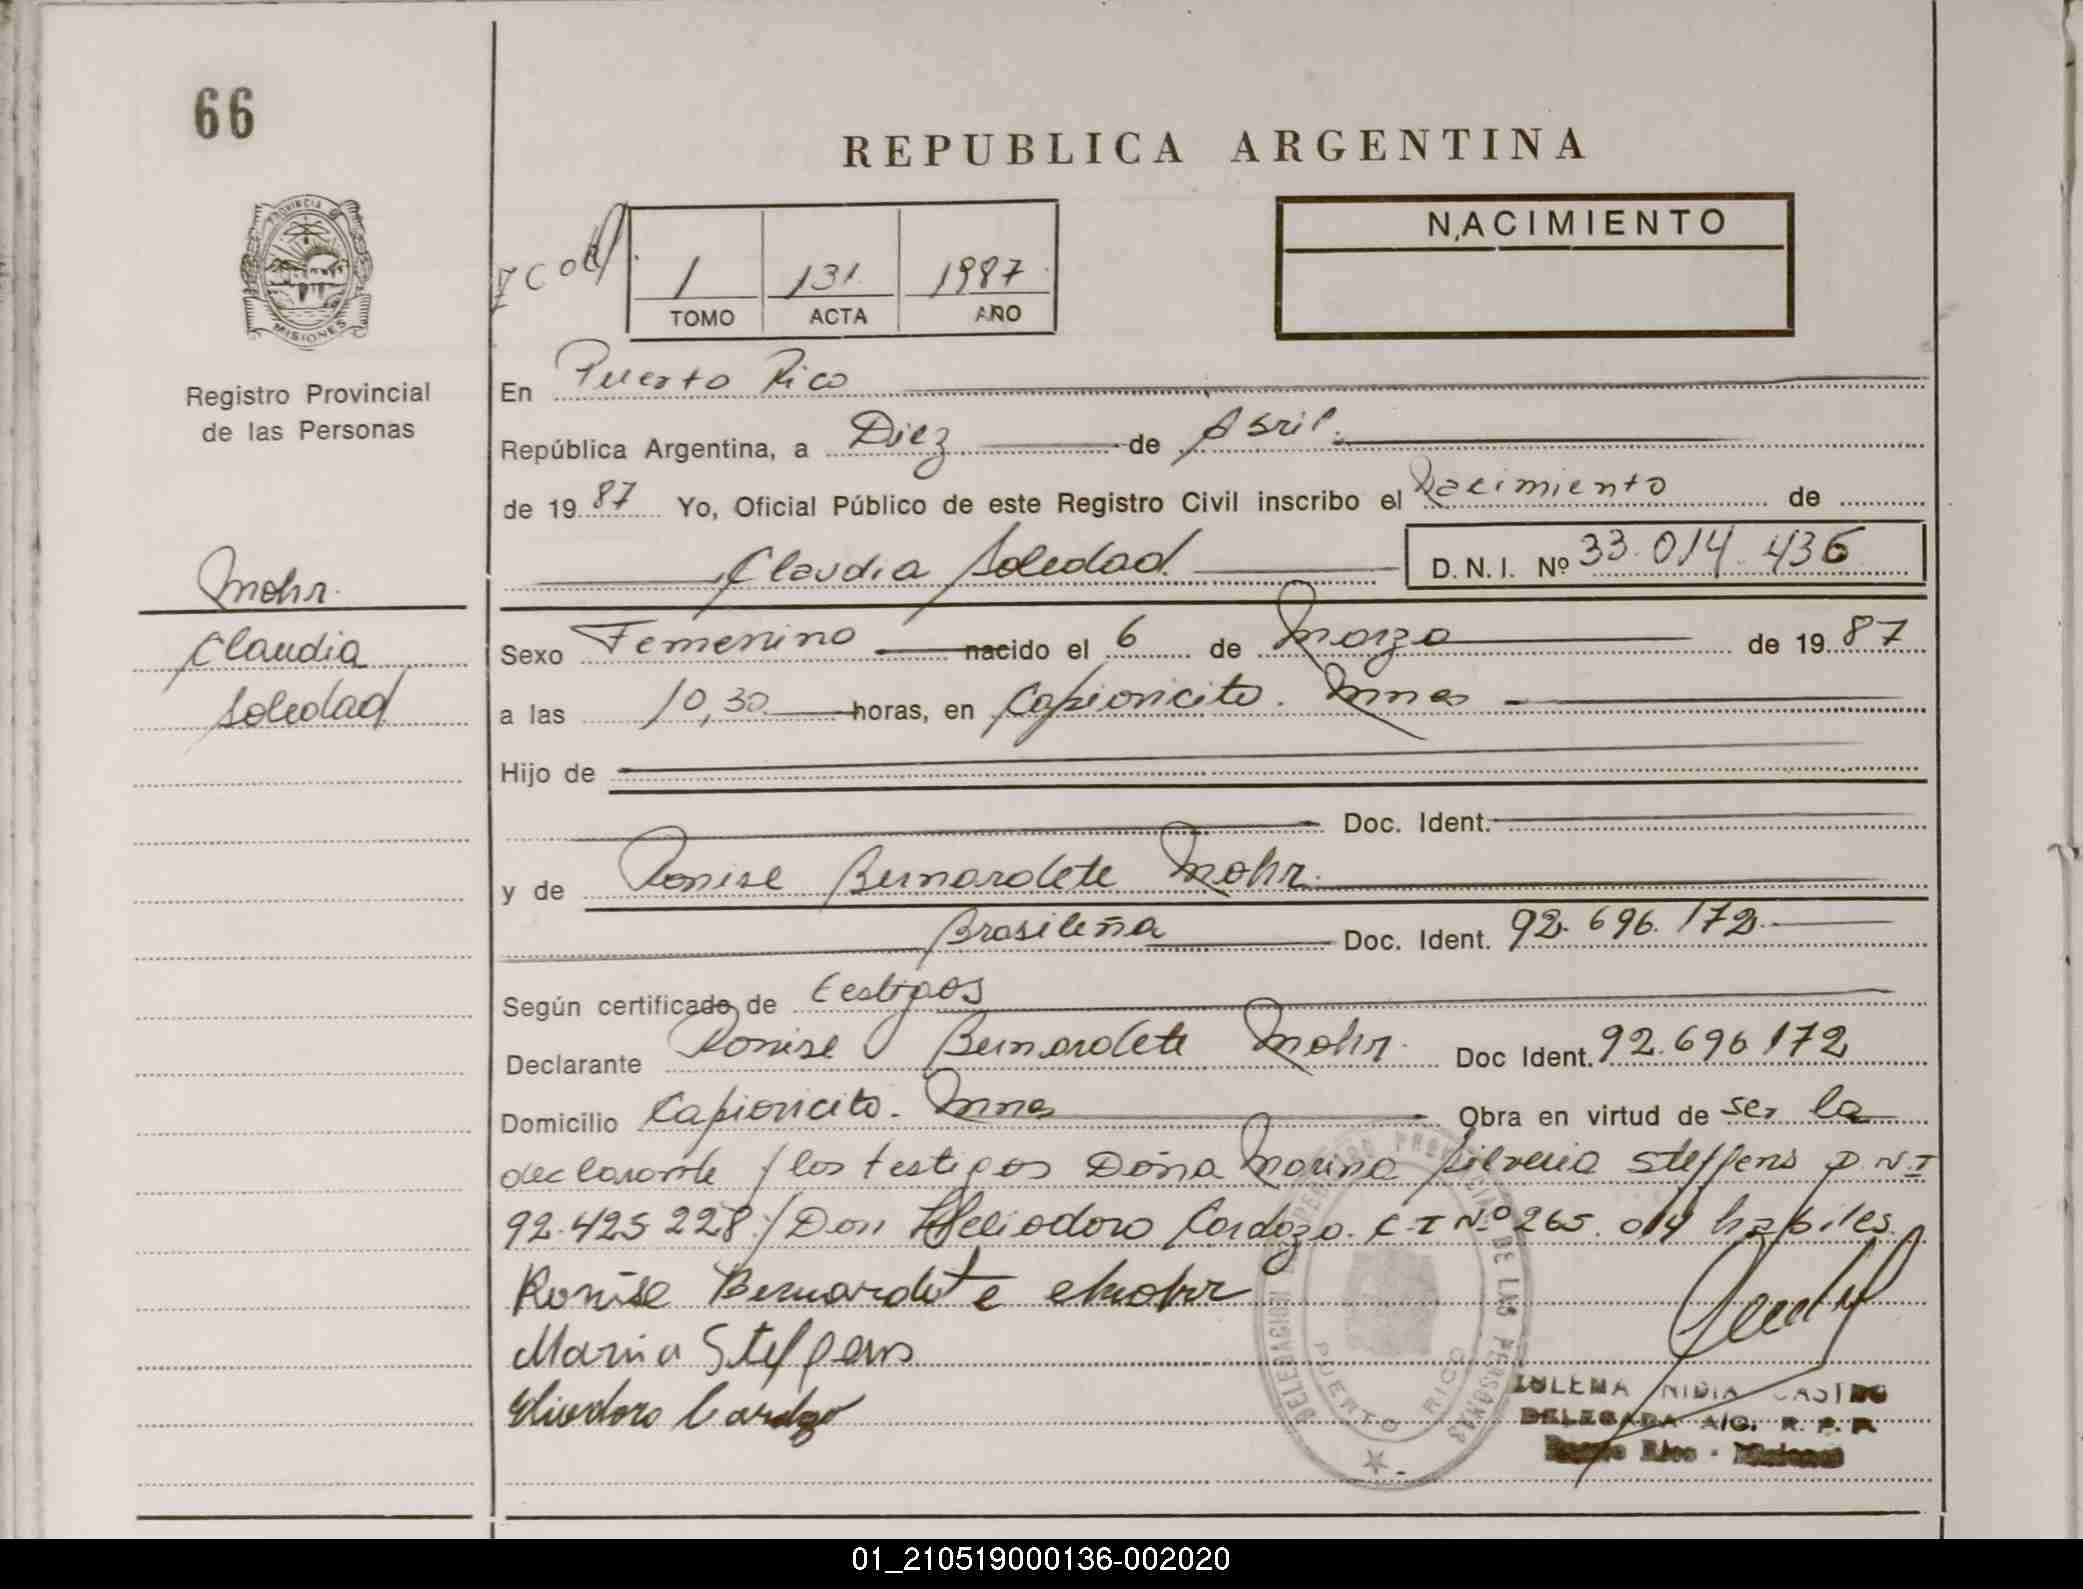 66
REPUBLICA ARGENTINA
PROVINCIA D
MISIONES
NACIMIENTO
1 131 1987
TOMO ACTA AÑO
Registro Provincial
de las Personas
En Puerto Rico
República Argentina, a Diez de Abril.
de 1987 Yo, Oficial Público de este Registro Civil inscribo el Nacimiento de
Claudia Soledad D.N.I. Nº 33.014.436
Mohr.
Claudia
Soledad
Sexo Femenino nacido el 6 de Marzo de 1987
a las 10,30 horas, en Capioricito. Mnes
Hijo de
Doc. Ident.
y de Ronise Bernardete Mohr.
Brasileña Doc. Ident. 92.696.172
Según certificado de testigos
Declarante Ronise Bernardete Mohr. Doc Ident. 92.696172
Domicilio Capioricito. Mnes Obra en virtud de ser la
declarante / los testigos Doña Marina Silveria Steffens D.N.I
92.425228 / Don Heliodoro Cardozo. C.I Nº 265.014 habiles.
Ronise Bernardete Mohr
Marina Steffens
Eliodoro Cardozo
DELEGACION REGISTRO PROVINCIAL DE LAS PERSONAS
PUERTO RICO
ZULEMA NIDIA CASTRO
DELEGADA A/C. R. P. P.
Puerto Rico - Misiones
01_210519000136-002020